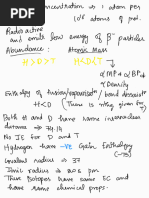 concentration is 1 atom per
10¹⁸ atoms of prot.
Radioactive
and emits low energy of β⁻ particles
Abundance : Atomic Mass
H > D > T H < D < T
α MP & α BP &
α Density
Enthalpy of fusion/vaporisatn / bond dissociatn
H < D (There is nothing given for T)
Both H and D have same internuclear
distance → 74.14
No IE for D and T
Hydrogen have -ve Gain Enthalpy
Covalent radius → 37
Ionic radius → 208 pm
Thus Isotopes have same EC and
have same chemical props.